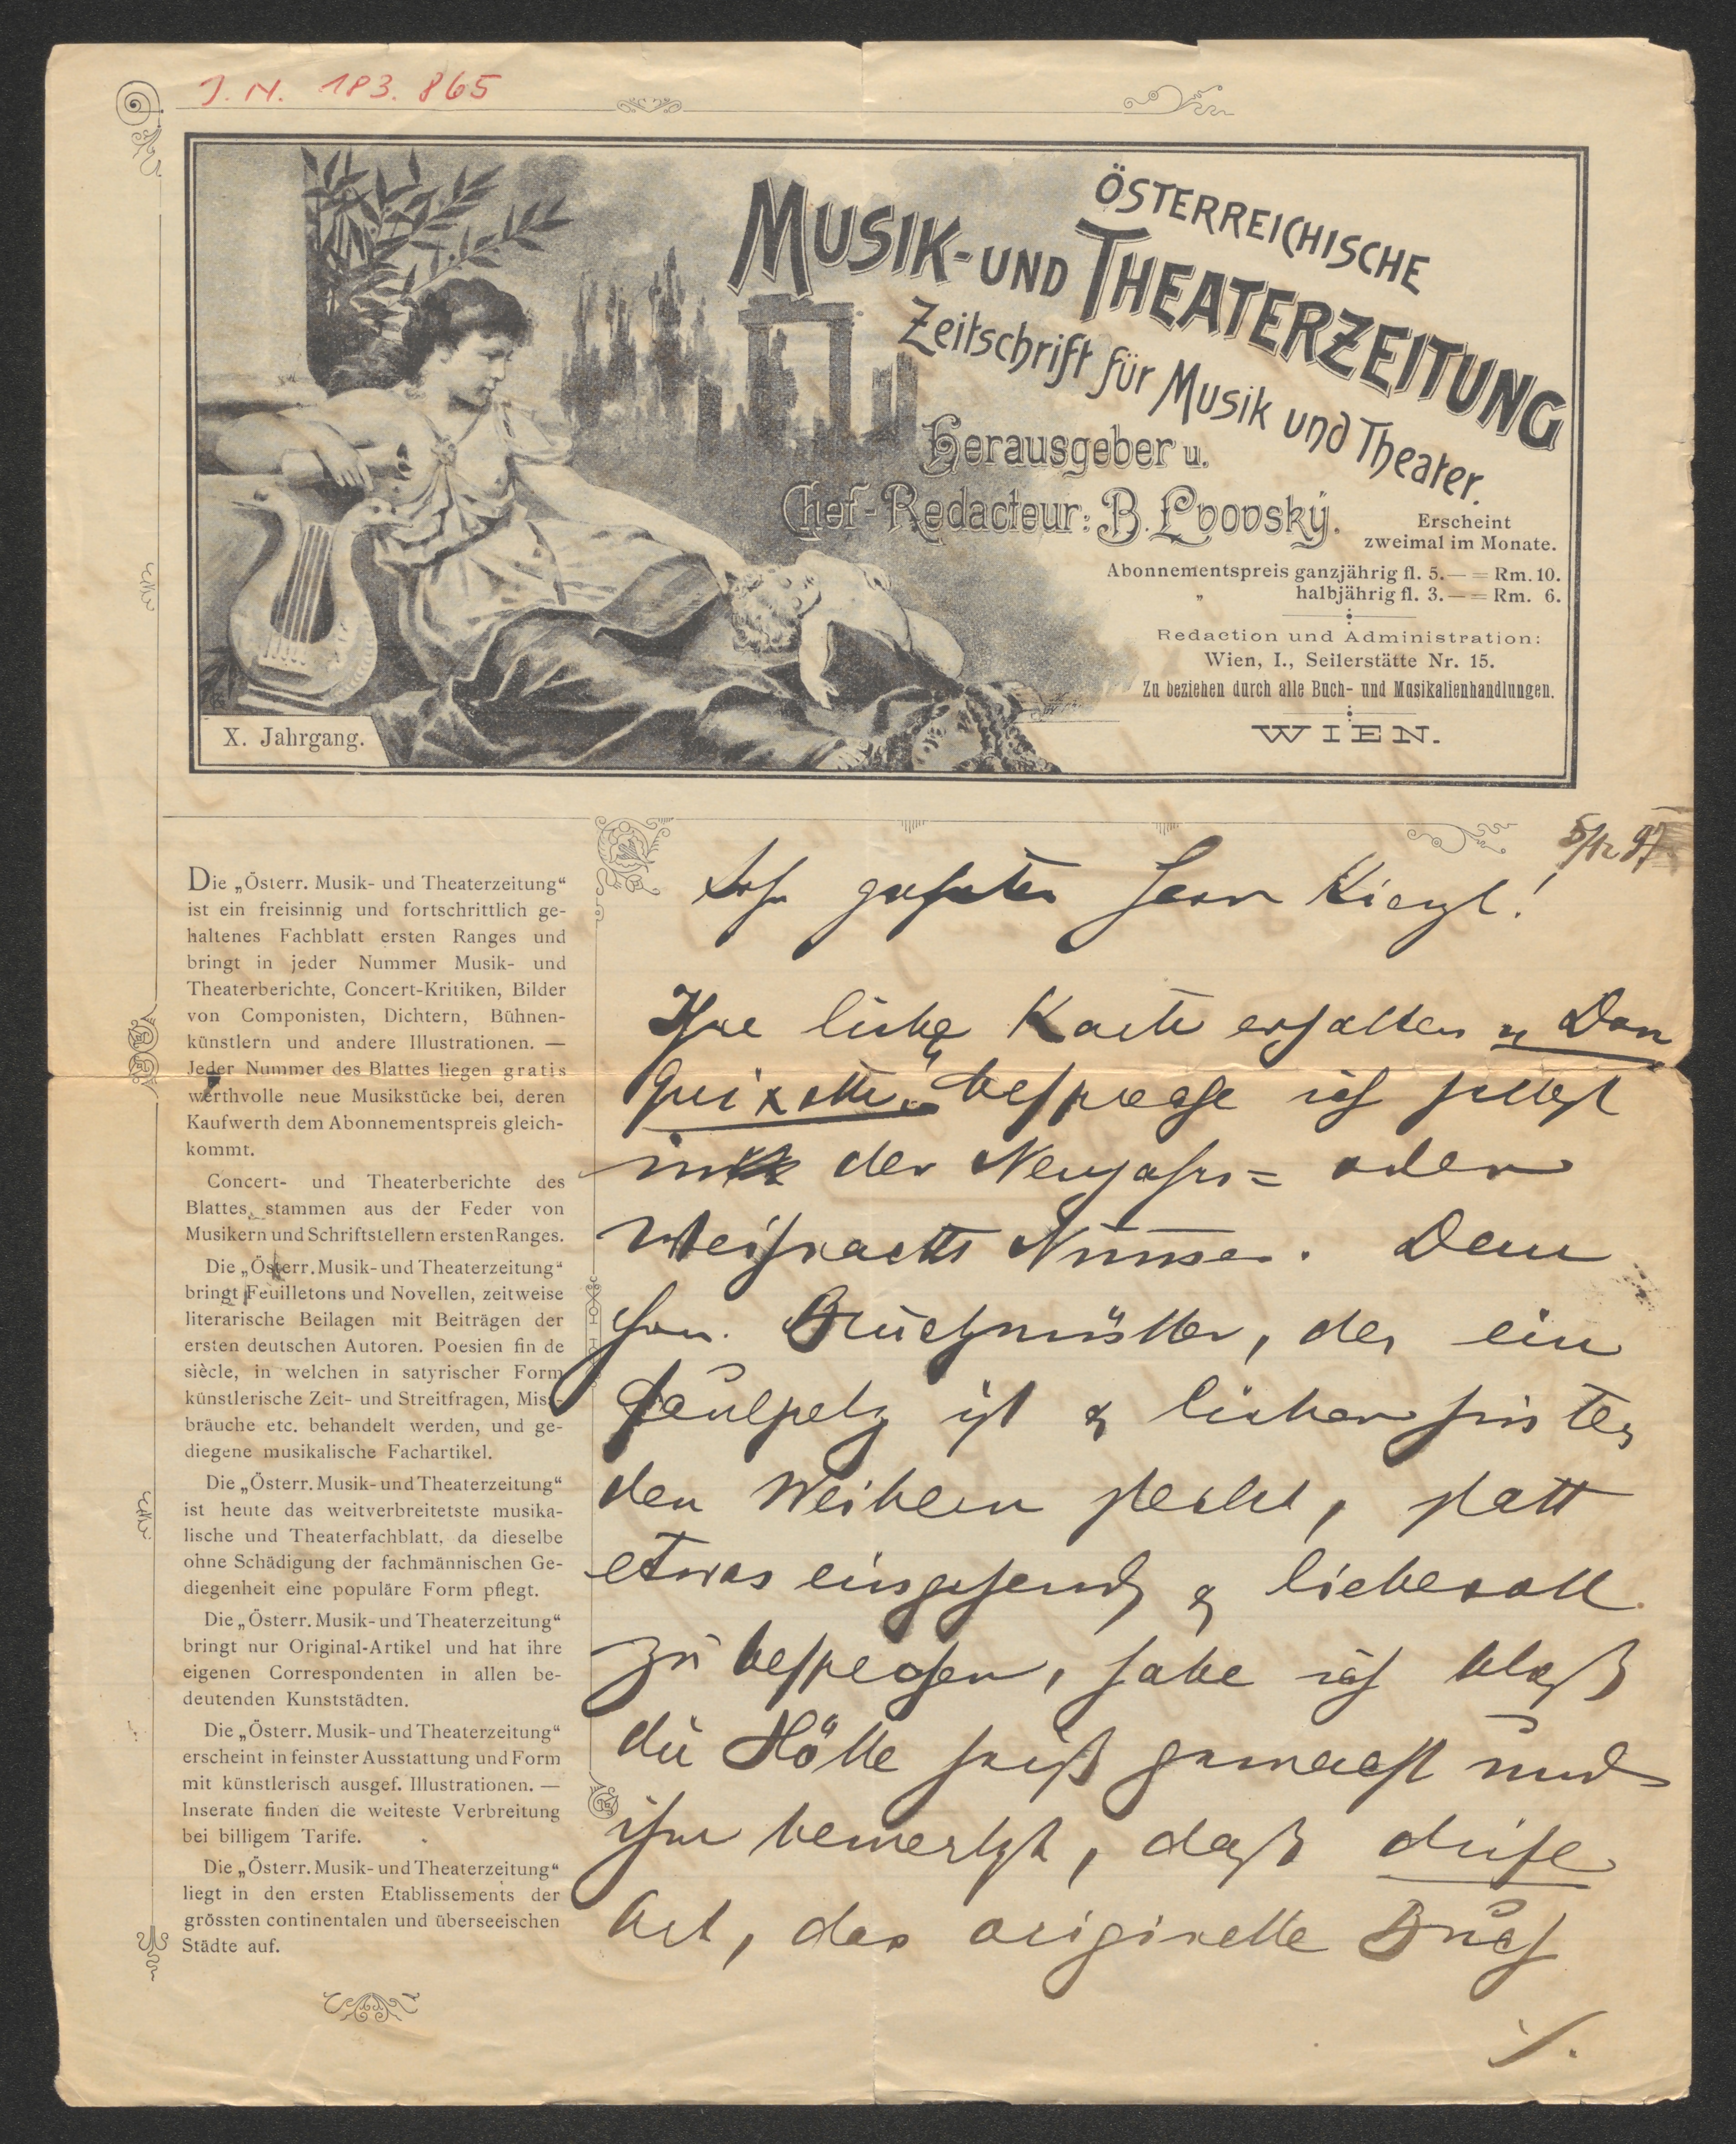 J. N. 183.865
ÖSTERREICHISCHE
MUSIK- UND THEATERZEITUNG
Zeitschrift für Musik und Theater.
Herausgeber u.
Chef-Redacteur: B. Lvovský.
Erscheint
zweimal im Monate.
Abonnementspreis ganzjährig fl. 5.— = Rm. 10.
„ halbjährig fl. 3.— = Rm. 6.
Redaction und Administration:
Wien, I., Seilerstätte Nr. 15.
Zu beziehen durch alle Buch- und Musikalienhandlungen.
WIEN.
X. Jahrgang.
Die „Österr. Musik- und Theaterzeitung“
ist ein freisinnig und fortschrittlich ge-
haltenes Fachblatt ersten Ranges und
bringt in jeder Nummer Musik- und
Theaterberichte, Concert-Kritiken, Bilder
von Componisten, Dichtern, Bühnen-
künstlern und andere Illustrationen. —
Jeder Nummer des Blattes liegen gratis
werthvolle neue Musikstücke bei, deren
Kaufwerth dem Abonnementspreis gleich-
kommt.
Concert- und Theaterberichte des
Blattes stammen aus der Feder von
Musikern und Schriftstellern ersten Ranges.
Die „Österr. Musik- und Theaterzeitung“
bringt Feuilletons und Novellen, zeitweise
literarische Beilagen mit Beiträgen der
ersten deutschen Autoren. Poesien fin de
siècle, in welchen in satyrischer Form
künstlerische Zeit- und Streitfragen, Miss-
bräuche etc. behandelt werden, und ge-
diegene musikalische Fachartikel.
Die „Österr. Musik- und Theaterzeitung“
ist heute das weitverbreitetste musika-
lische und Theaterfachblatt, da dieselbe
ohne Schädigung der fachmännischen Ge-
diegenheit eine populäre Form pflegt.
Die „Österr. Musik- und Theaterzeitung“
bringt nur Original-Artikel und hat ihre
eigenen Correspondenten in allen be-
deutenden Kunststädten.
Die „Österr. Musik- und Theaterzeitung“
erscheint in feinster Ausstattung und Form
mit künstlerisch ausgef. Illustrationen. —
Inserate finden die weiteste Verbreitung
bei billigem Tarife.
Die „Österr. Musik- und Theaterzeitung“
liegt in den ersten Etablissements der
grössten continentalen und überseeischen
Städte auf.
5/12 97
Sehr geehrter Herr Kienzl!
Ihre liebe Karte erhalten „Don
Quixotte“ bespreche ich selbst
in der Neujahrs= oder
Weihnachts Nummer. Dem
Hrn. Bruckmüller, der ein
Faulpelz ist & lieber hinter
den Weibern steckt, statt
etwas eingehend & liebevoll
zu besprechen, habe ich bloß
die Hölle heiß gemacht und
ihm bemerkt, daß diese
Art, das originelle Buch
./.